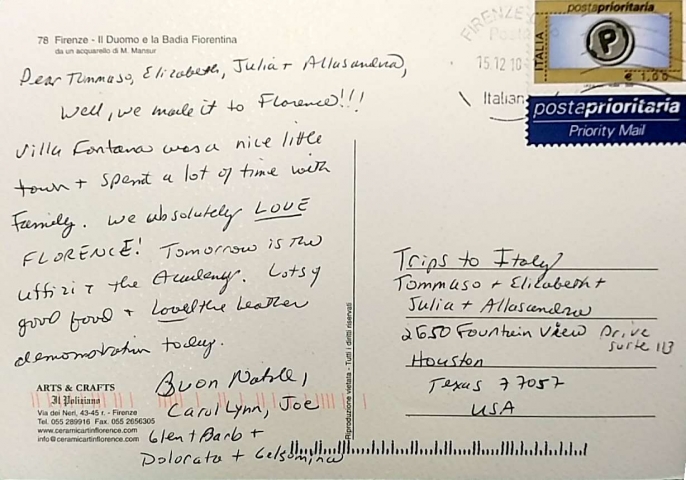 78 Firenze - Il Duomo e la Badia Fiorentina
da un acquarello di M. Mansur
Dear Tommaso, Elizabeth, Julia + Allasandra,
Well, we made it to Florence!!!
Villa Fontana was a nice little
town + spent a lot of time with
Family. We absolutely LOVE
FLORENCE! Tomorrow is the
uffizi + the Academy. Lots of
good food + Loved the Leather
demonstration today.
Buon Natale,
Carol Lynn, Joe
Glen + Barb +
Dolorata + Gelsomina
ARTS & CRAFTS
Il Poliziano
Via dei Neri, 43-45 r. - Firenze
Tel. 055 289916 Fax. 055 2656305
www.ceramicartinflorence.com
info@ceramicartinflorence.com
Riproduzione vietata - Tutti i diritti riservati
FIRENZE
Posta
15.12.10
Italian
postaprioritaria
ITALIA
P
€ 1,00
postaprioritaria
Priority Mail
Trips to Italy
Tommaso + Elizabeth +
Julia + Allasandra
2650 Fountain View Drive
Suite 113
Houston
Texas 77057
USA